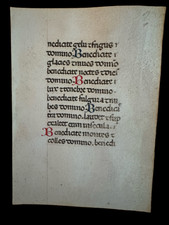 nedicite gelu et frigus
domino. Benedicite
glacies et nives domino
benedicite noctes et dies
domino. Benedicite
lux et tenebre domino
benedicite fulgura et nubes
domino. Benedicite
domino. laudet et sup
exaltet eum in secula.
Benedicite montes et
colles domino. benedi